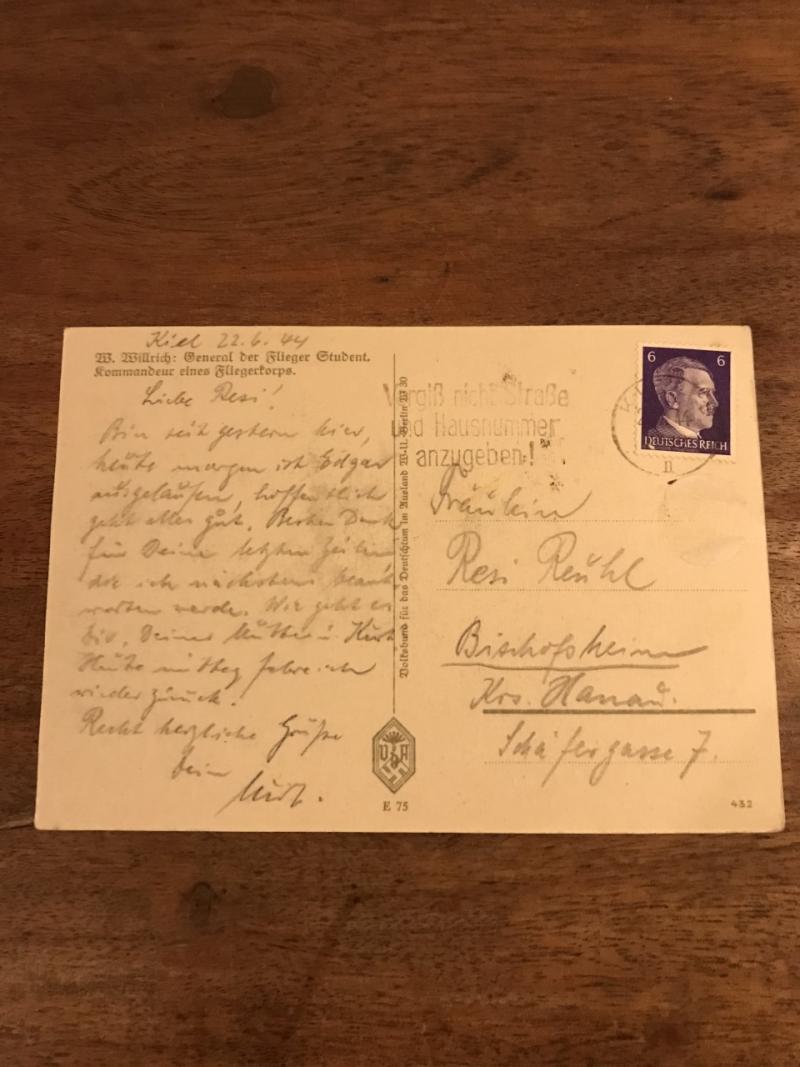 Kiel 22.6.44
W. Willrich: General der Flieger Student.
Kommandeur eines Fliegerkorps.
Liebe Resi!
Bin seit gestern hier,
heute morgen ist Edgar
ausgelaufen, hoffentlich
geht alles gut. Besten Dank
für Deine letzten Zeilen
die ich nächstens beant
worten werde. Wie geht es
Dir, Deiner Mutter u. Kurt
Heute mittag fahre ich
wieder zurück.
Recht herzliche Grüße
Dein
Volksbund für das Deutschtum im Ausland W-U. Berlin W 30
VDA
E 75
Vergiß nicht Straße
und Hausnummer
anzugeben!
6 6
DEUTSCHES REICH
n
Fräulein
Resi Reuhl
Bischofsheim
Krs. Hanau.
Schäfergasse 7.
432